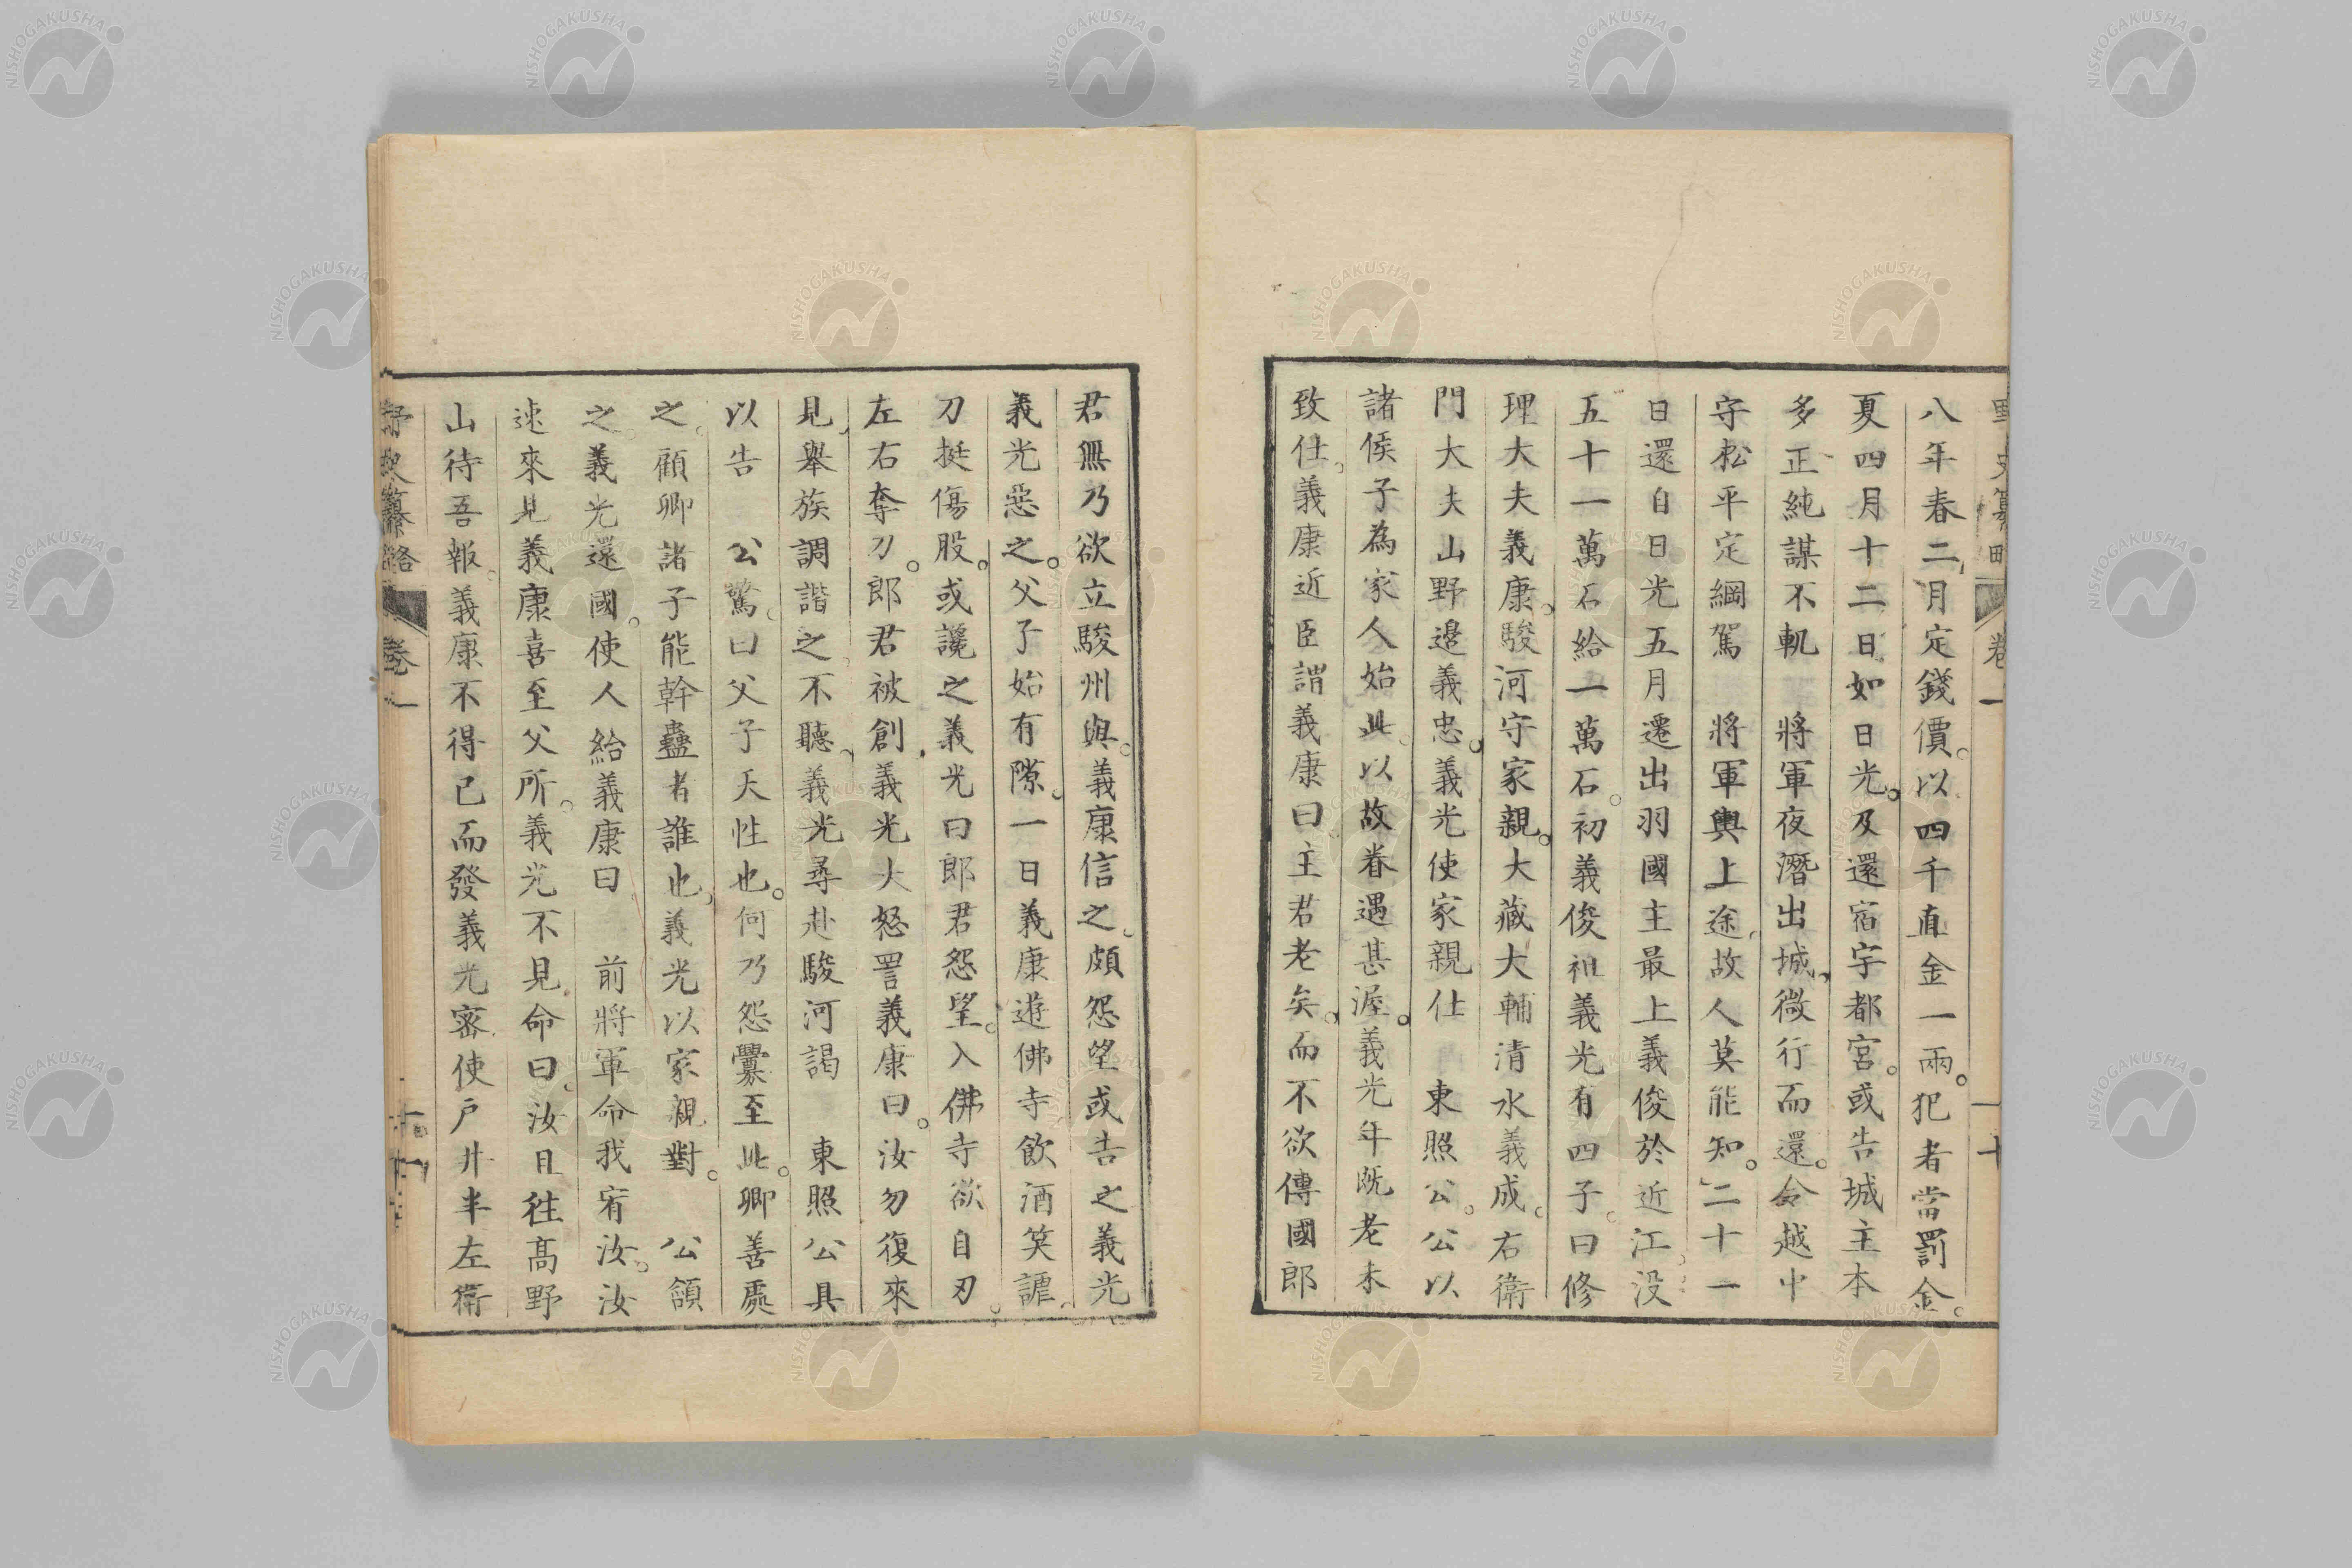 八年春二月定錢價。以四千直金一兩。犯者當罰金。
夏四月十二日如日光。及還宿宇都宮。或告城主本
多正純謀不軌　將軍夜潛出城、微行而還。令越中
守松平定綱駕　將軍輿上途、故人莫能知。二十一
日還自日光五月遷出羽國主最上義俊於近江、沒
五十一萬石給一萬石。初義俊祖義光有四子。曰修
理大夫義康。駿河守家親。大藏大輔清水義成。右衛
門大夫山野邊義忠。義光使家親仕　東照公。公以
諸侯子為家人始此。以故眷遇甚渥。義光年既老未
致仕。義康近臣謂義康曰。主君老矣。而不欲傳國郎
君無乃欲立駿州與。義康信之、頗怨望或告之義光
義光惡之。父子始有隙。一日義康遊佛寺飲酒笑謔。
刀挺傷股。或讒之義光曰郎君怨望。入佛寺欲自刃。
左右奪刀。郎君被創、義光大怒詈義康曰。汝勿復來
見、舉族調諧之。不聽、義光尋赴駿河謁　東照公具
以告　公驚。曰父子天性也。何乃怨釁至此。卿善處
之。顧卿諸子能幹蠱者誰也、義光以家親對。　公頷
之。義光還國。使人給義康曰　前將軍命我宥汝。汝
速來見義康喜至父所。義光不見命曰。汝且往髙野
山待吾報。義康不得已而發義光密使戸井半左衛
卷一
卷一